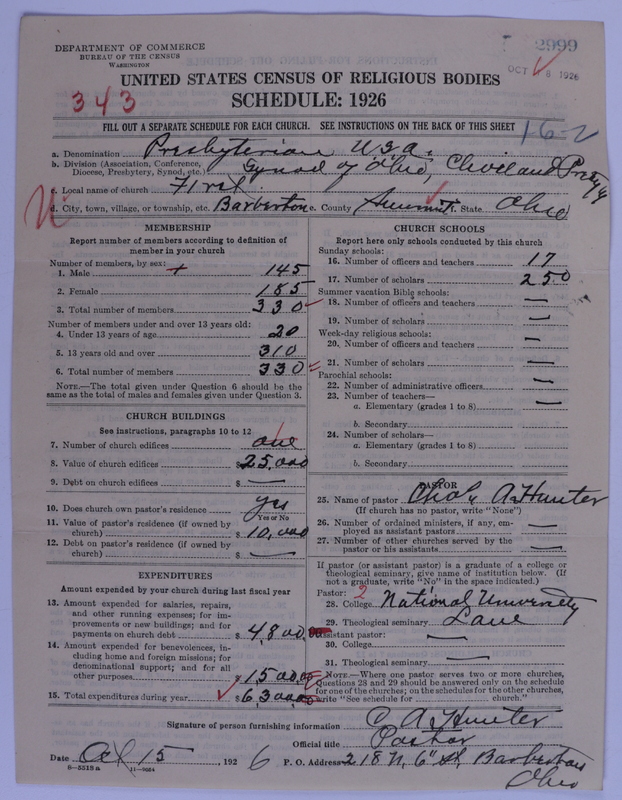 DEPARTMENT OF COMMERCE
BUREAU OF THE CENSUS
WASHINGTON
2999
OCT 8 1926
UNITED STATES CENSUS OF RELIGIOUS BODIES
343
SCHEDULE: 1926
FILL OUT A SEPARATE SCHEDULE FOR EACH CHURCH. SEE INSTRUCTIONS ON THE BACK OF THIS SHEET
16-2
a. Denomination Presbyterian U S a.
b. Division (Association, Conference, Diocese, Presbytery, Synod, etc.) Synod of Ohio, Cleveland
c. Local name of church First
d. City, town, village, or township, etc. Barberton e. County Summit f. State Ohio
MEMBERSHIP
Report number of members according to definition of
member in your church
Number of members, by sex:
1. Male 145
2. Female 185
3. Total number of members 330
Number of members under and over 13 years old:
4. Under 13 years of age 20
5. 13 years old and over 310
6. Total number of members 330
NOTE.—The total given under Question 6 should be
same as the total of males and females given under Question 3.
CHURCH BUILDINGS
See instructions, paragraphs 10 to 12
7. Number of church edifices one
8. Value of church edifices $ 25,000
9. Debt on church edifices $ —
10. Does church own pastor's residence yes
Yes or No
11. Value of pastor's residence (if owned by
church) $ 10,000
12. Debt on pastor's residence (if owned by
church) $ —
EXPENDITURES
Amount expended by your church during last fiscal year
13. Amount expended for salaries, repairs,
and other running expenses; for im-
provements or new buildings; and for
payments on church debt $ 4,800
14. Amount expended for benevolences,
including home and foreign missions; for
denominational support; and for all
other purposes $ 1500.00
15. Total expenditures during year $ 6,300.00
CHURCH SCHOOLS
Report here only schools conducted by this church
Sunday schools:
16. Number of officers and teachers 17
17. Number of scholars 250
Summer vacation Bible schools:
18. Number of officers and teachers —
19. Number of scholars —
Week-day religious schools:
20. Number of officers and teachers —
21. Number of scholars —
Parochial schools:
22. Number of administrative officers —
23. Number of teachers—
a. Elementary (grades 1 to 8) —
b. Secondary
24. Number of scholars—
a. Elementary (grades 1 to 8)
b. Secondary
PASTOR
25. Name of pastor A Hunter
(If church has no pastor, write "None")
26. Number of ordained ministers, if any, em-
ployed as assistant pastors —
27. Number of other churches served by the
pastor or his assistants —
If pastor (or assistant pastor) is a graduate of a college or
theological seminary, give name of institution below. (If
not a graduate, write "No" in the space indicated.)
Pastor: 2
28. College National University
29. Theological seminary Lane
Assistant pastor:
30. College —
31. Theological seminary —
NOTE.—Where one pastor serves two or more churches,
Questions 28 and 29 should be answered only on the schedule
for one of the churches; on the schedules for the other churches,
write "See schedule for church."
Signature of person furnishing information C A Hunter
Official title Pastor
Date Oct 15, 1926 P. O. Address 218 N, 6" St, Barberton
Ohio
8—5518a 11—9064